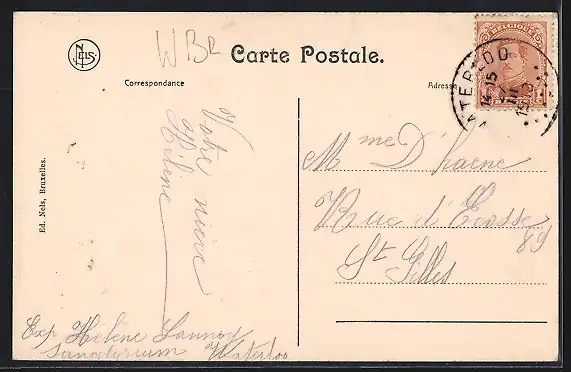 NELS
WBr
Carte Postale.
Correspondance
Adresse
BELGIQUE
WATERLOO
14-15
III
Votre nièce
aff
Hélène
Mme D'haene
Rue d'Ecosse
89
St Gilles
Exp Helène Lannoy
Sanatorium Waterloo
Ed. Nels, Bruxelles.